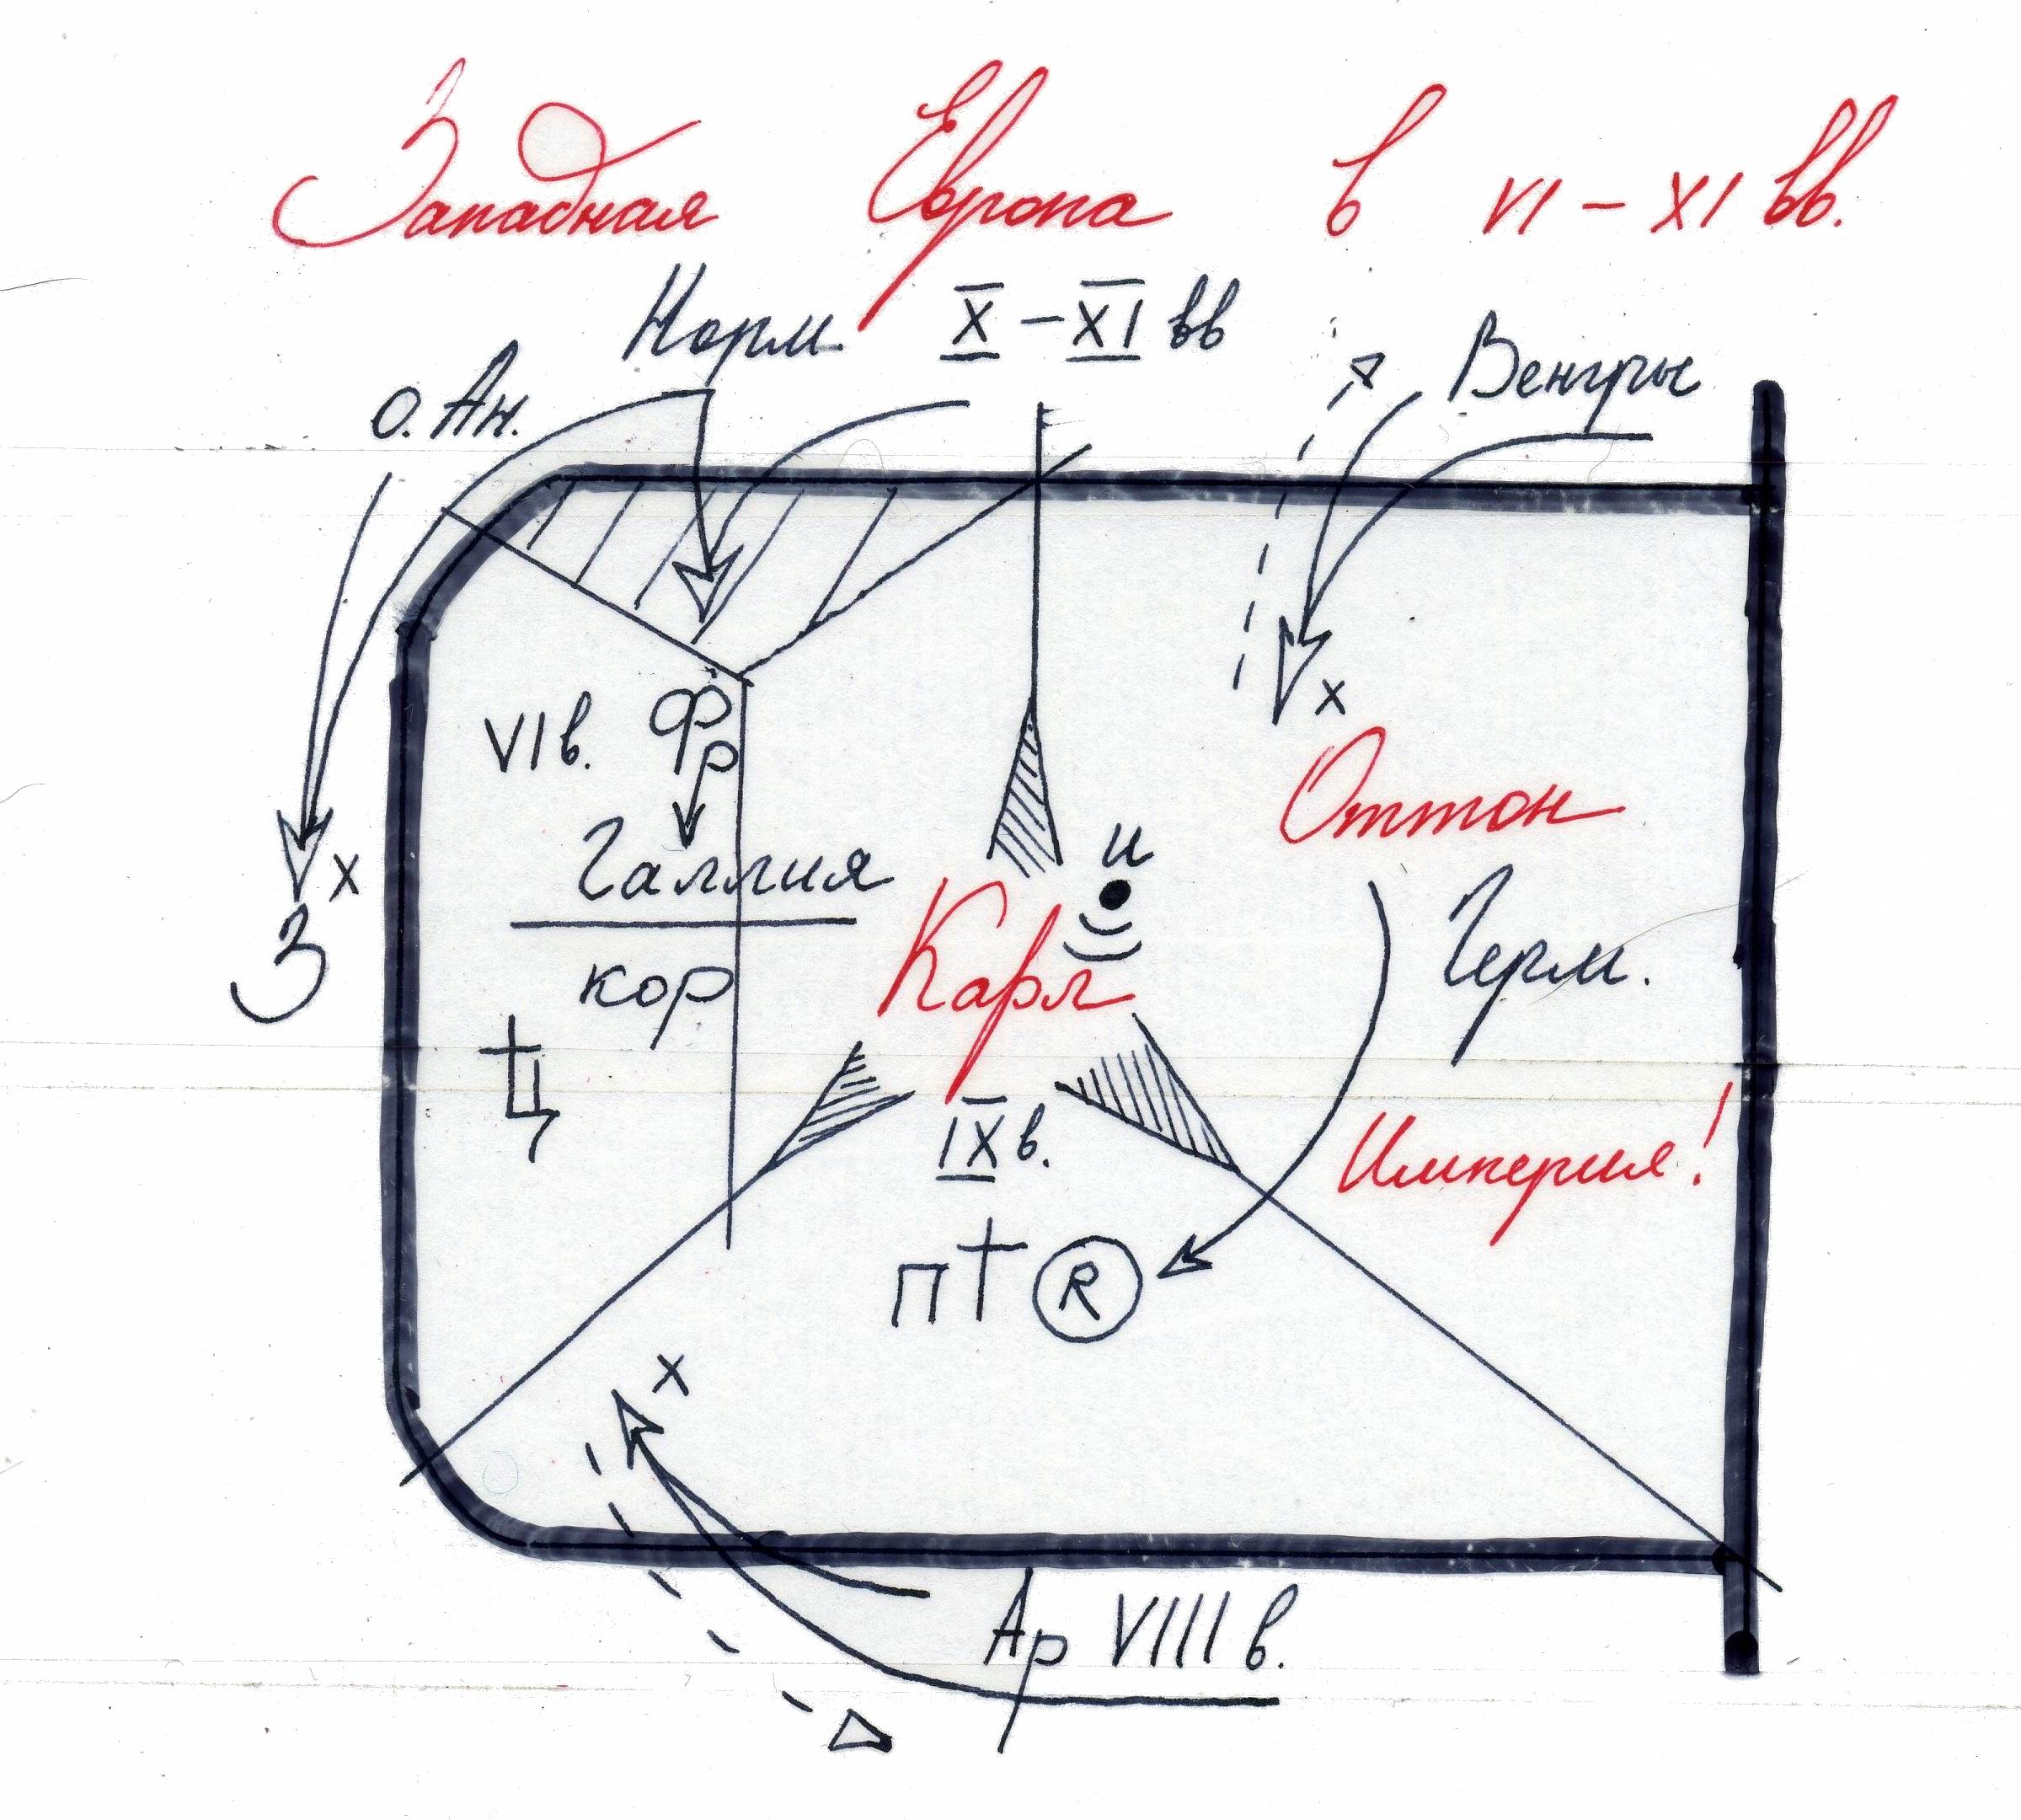 Западная Европа в VI – XI вв.
Норм. X – XI вв
О. Ан.
Венгры
х
VI в. Фр
Галлия
кор
х
З
Ц
и
Карл
IX в.
П R
Оттон
Герм.
Империя!
х
Ар VIII в.